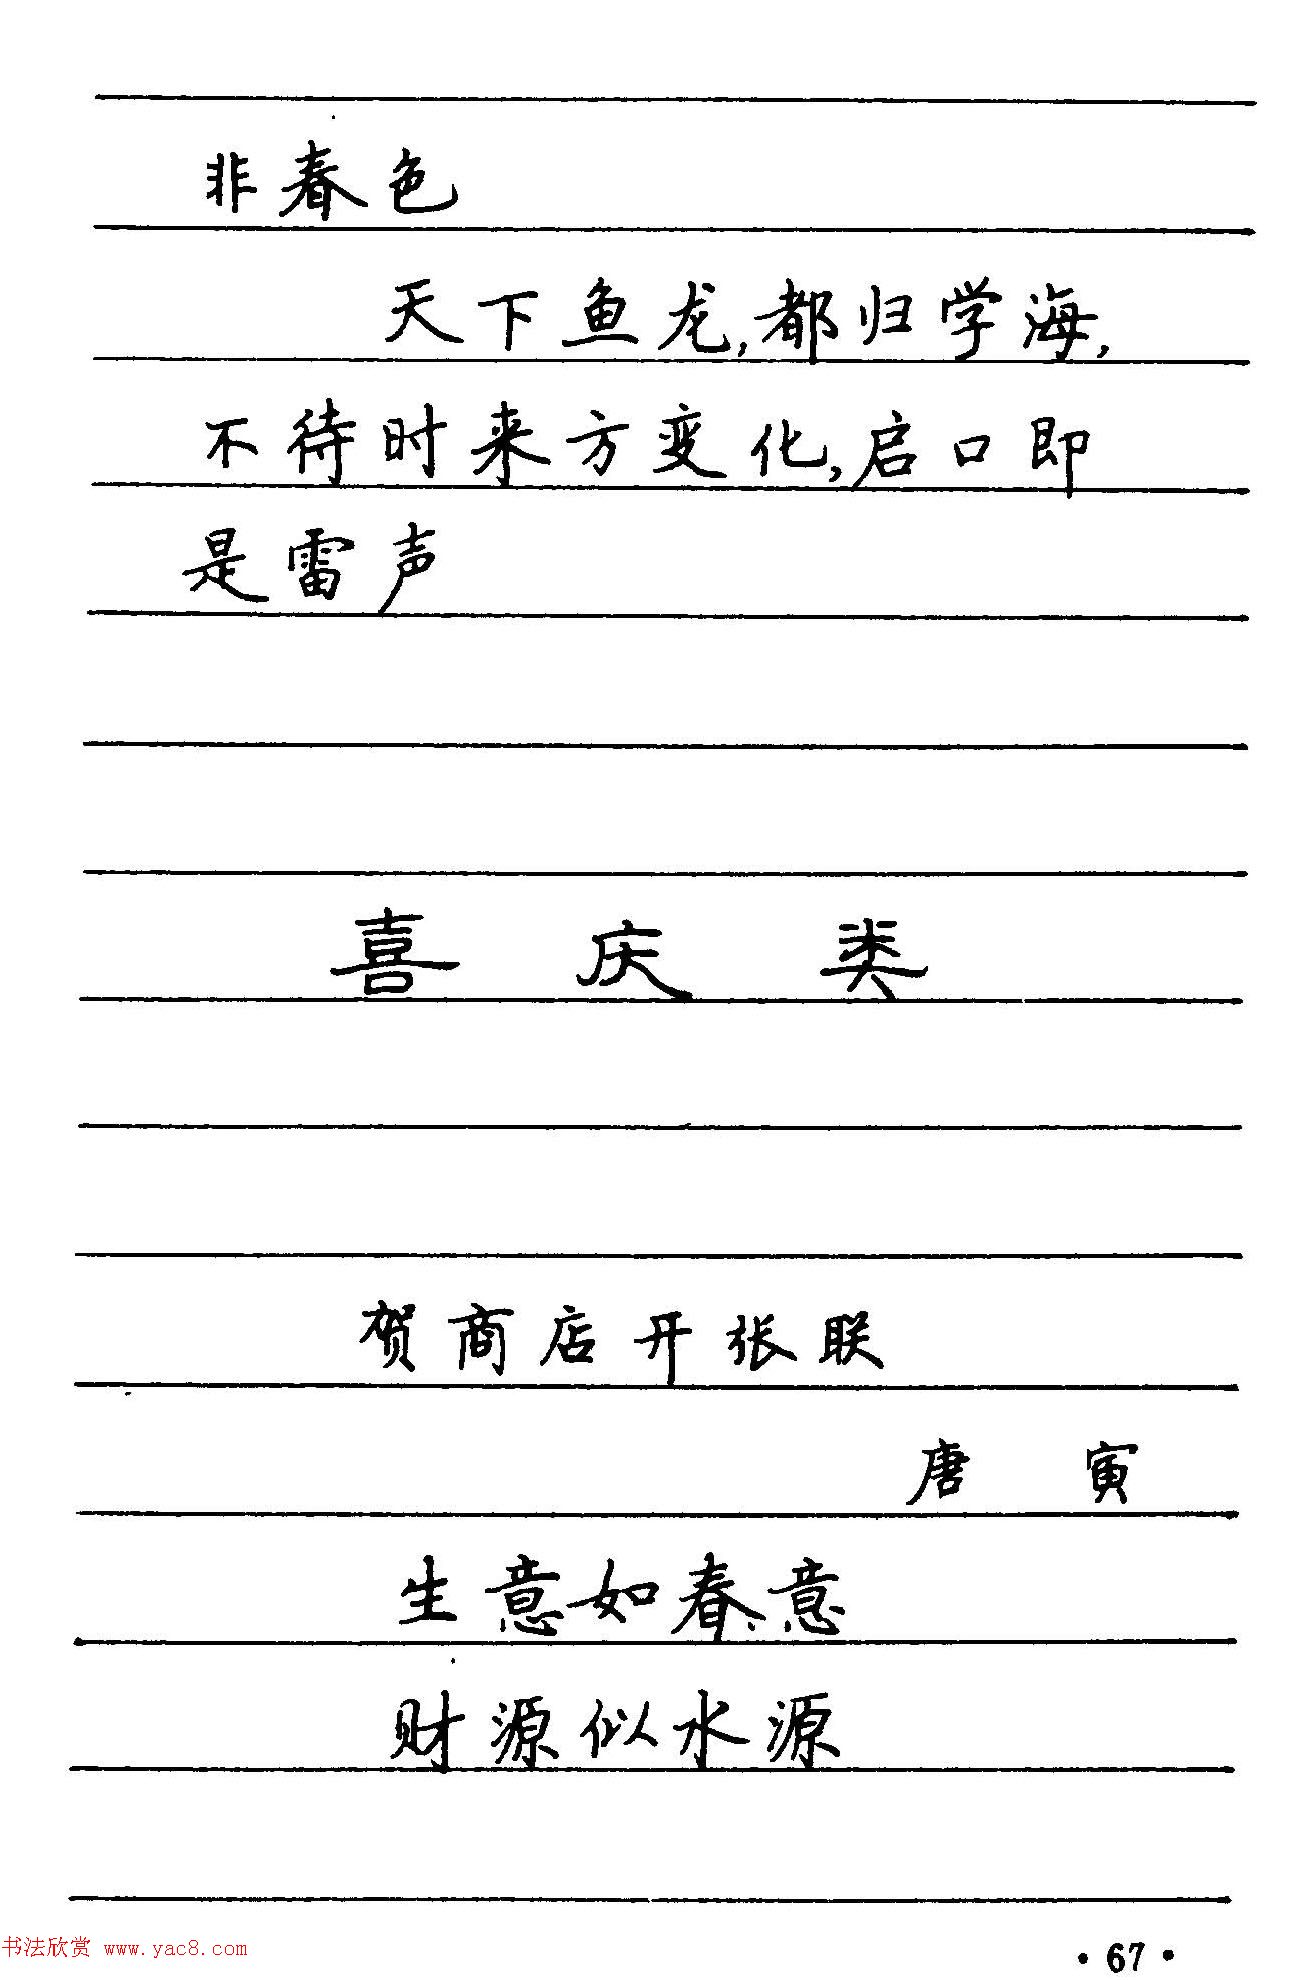 非春色
天下鱼龙,都归学海,
不待时来方变化,启口即
是雷声
喜庆类
贺商店开张联
唐寅
生意如春意
财源似水源
书法欣赏 www.yac8.com
·67·